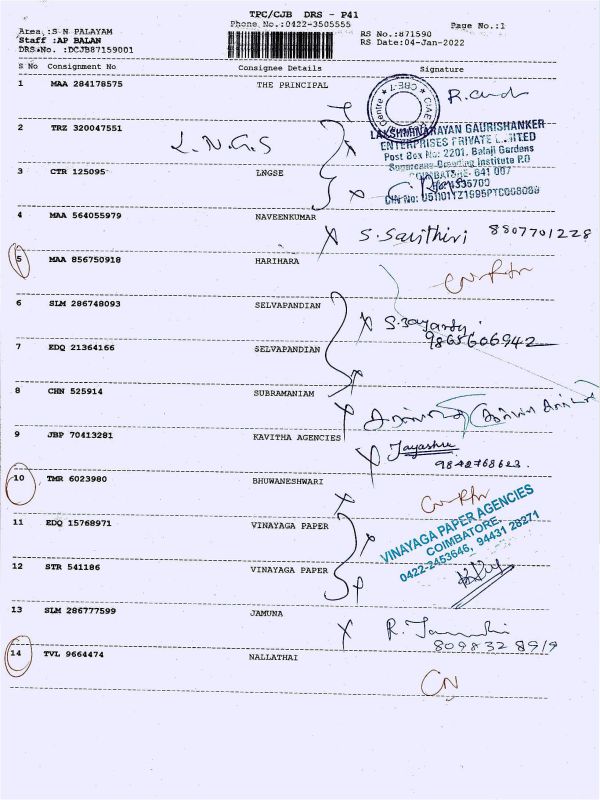 TPC/CJB DRS - P41
Phone No.:0422-3505555
Page No.:1
Area :S N PALAYAM
RS No.:871590
Staff :AP BALAN
RS Date:04-Jan-2022
DRS No. :DCJB87159001
S No Consignment No Consignee Details Signature
1 MAA 284178575 THE PRINCIPAL
2 TRZ 320047551 L.N.G.S
LAKSHMINARAYAN GAURISHANKER
ENTERPRISES PRIVATE LIMITED
Post Box No: 2201, Balaji Gardens
Sugarcane Breeding Institute P.O
COIMBATORE- 641 007
3 CTR 125095 LNGSE
4 MAA 564055979 NAVEENKUMAR
S. Savithiri 8807701228
5 MAA 856750918 HARIHARA
6 SLM 286748093 SELVAPANDIAN
9865606942
7 EDQ 21364166 SELVAPANDIAN
8 CHN 525914 SUBRAMANIAM
9 JBP 70413281 KAVITHA AGENCIES
Jayashree
9842768623
10 TMR 6023980 BHUWANESHWARI
11 EDQ 15768971 VINAYAGA PAPER
VINAYAGA PAPER AGENCIES
COIMBATORE.
0422-2453646, 94431 28271
12 STR 541186 VINAYAGA PAPER
13 SLM 286777599 JAMUNA
8098328919
14 TVL 9664474 NALLATHAI
CN